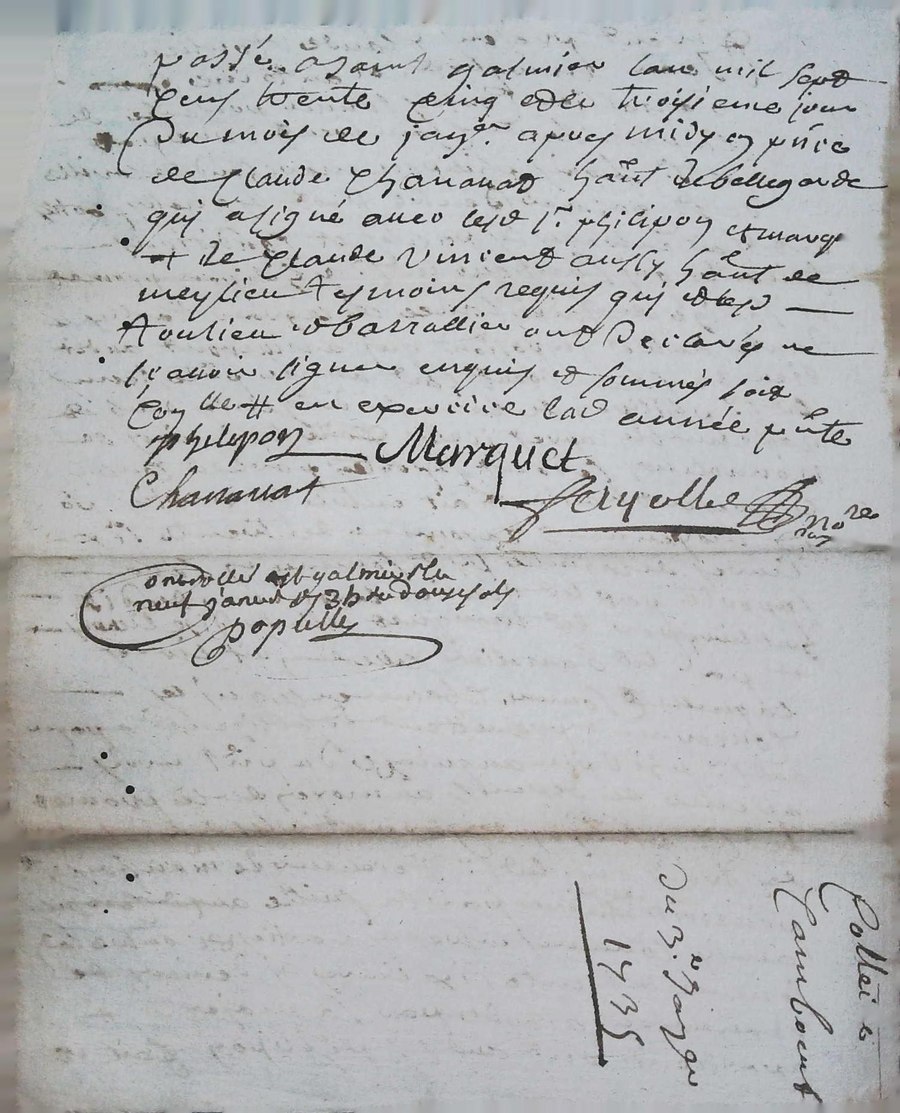 passé a saint galmier lan mil sept
cens trente cinq et le troisieme jour
du mois de janer. apres midy en pnce
de Claude Chananat hãnt de bellegarde
qui a signé avec led sr. philipon et marq
+ de Claude Vincent aussy hãnt de
meylieu tesmoins requis qui et les
et barrallier ont declarés ne
scavoir signer enquis et sommés soit
en exercice lad année pnte
philipon Marquet
Chananat
nore
Controllé a st galmier le
neuf janvier 1735 douze sols
populle
Du 3e. Janer
1735